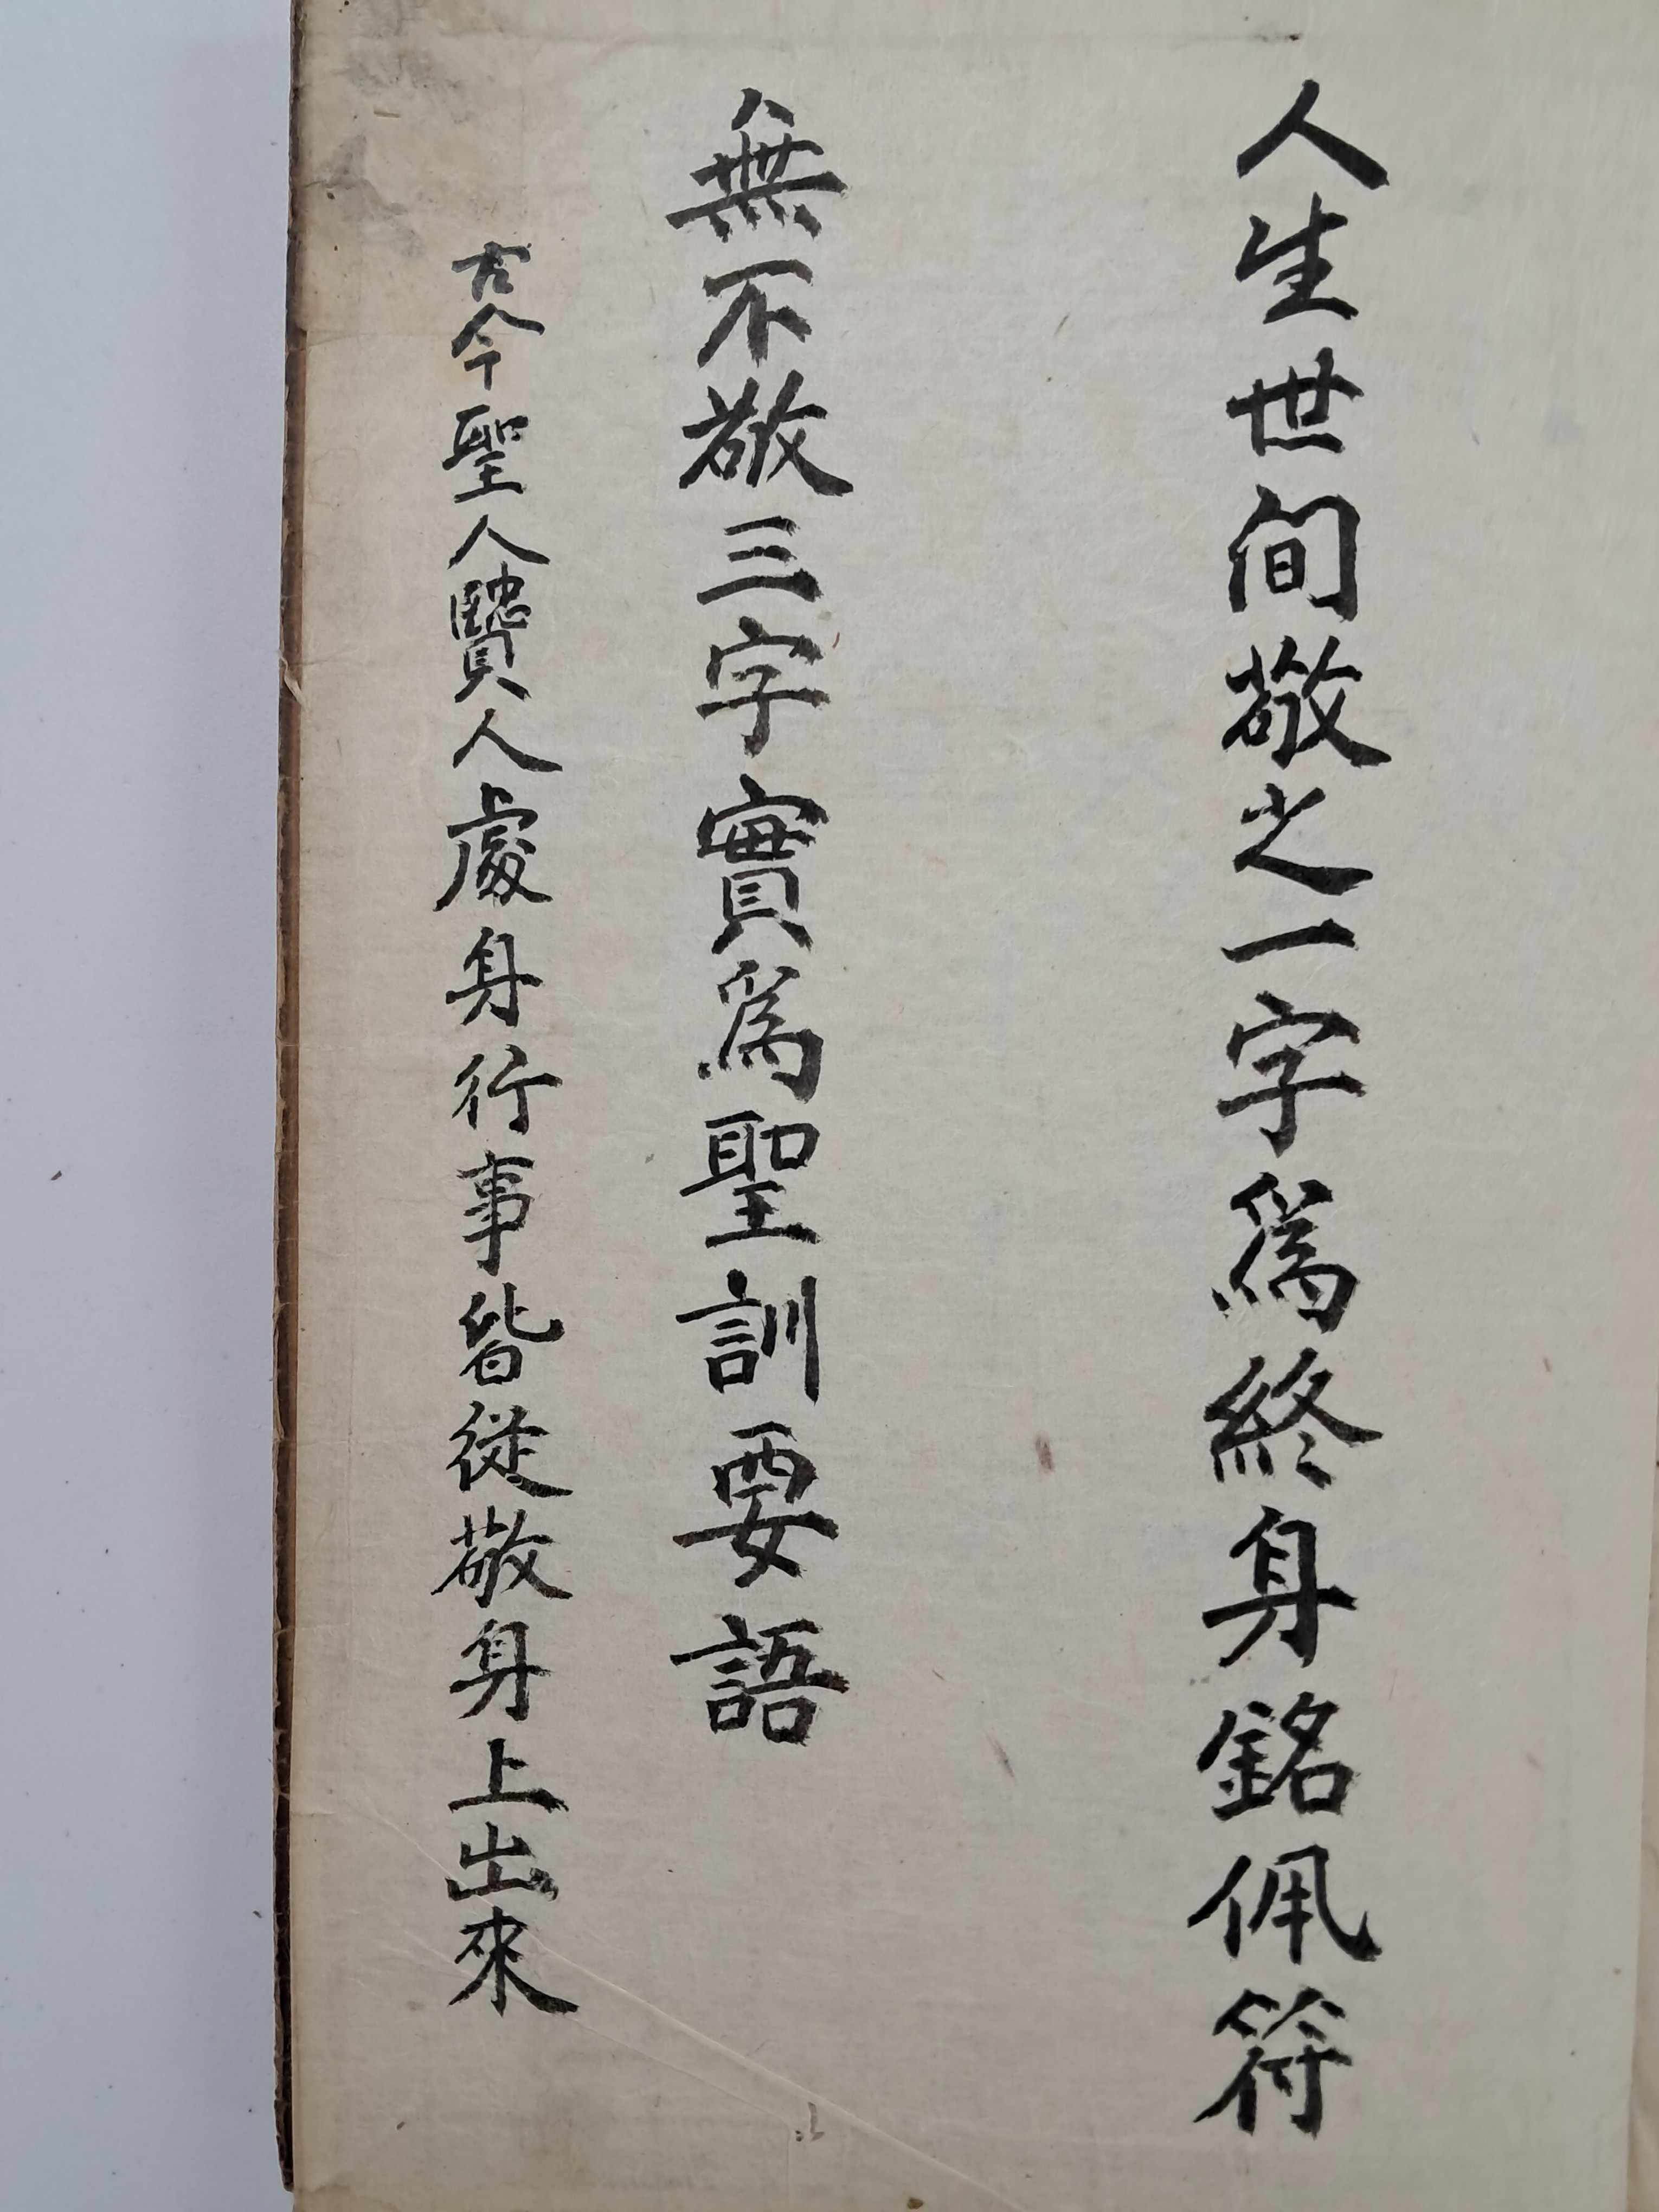 人生世間敬之一字爲終身銘佩符
無不敬三字實爲聖訓要語
古今聖人賢人處身行事皆從敬身上出來